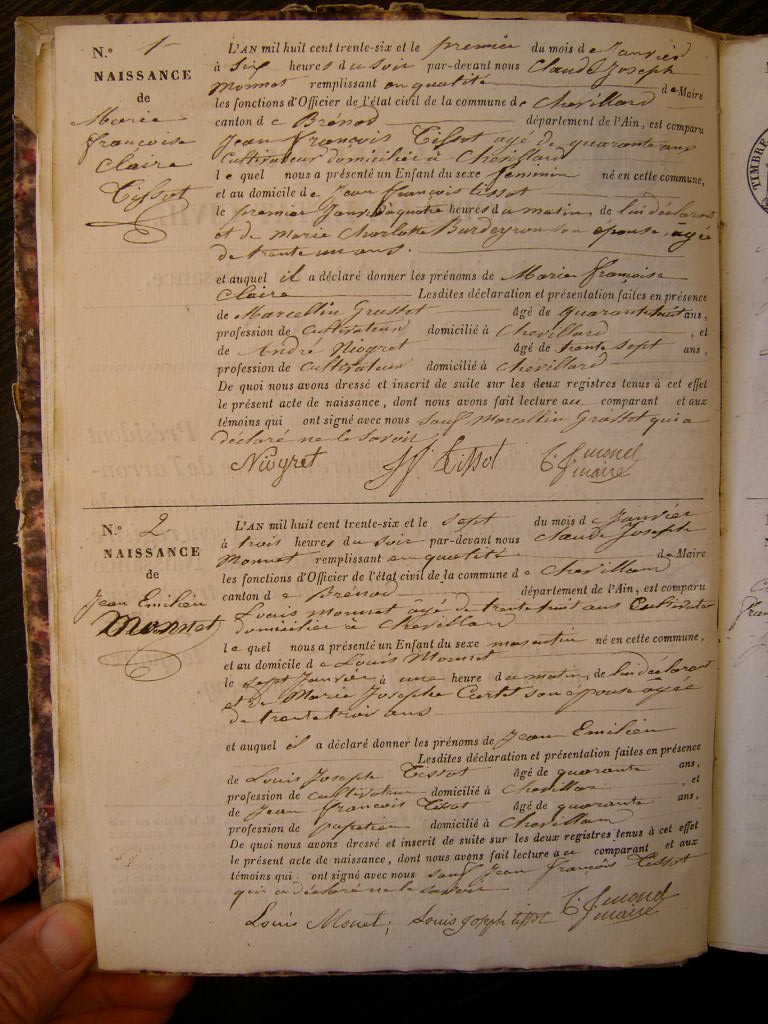 N.º 1
NAISSANCE
de
Marie
françoise
Claire
Tissot
L'AN mil huit cent trente-six et le premier du mois de Janvier
à six heures du soir par-devant nous Claude Joseph
Monnet remplissant en qualité de Maire
les fonctions d'Officier de l'état civil de la commune de Chevillard
canton de Brénod département de l'Ain, est comparu
Jean françois Tissot agé de quarante ans
Cultivateur domicilié à Chevillard
le quel nous a présenté un Enfant du sexe féminin né en cette commune,
et au domicile de Jean françois tissot
le premier Janv. à quatre heures du matin, de lui déclarant
et de Marie Charlotte Burdeyron son épouse, agée
de trente un ans.
et auquel il a déclaré donner les prénoms de Marie françoise
Claire Lesdites déclaration et présentation faites en présence
de Marcellin Grassot âgé de quarante huit ans,
profession de Cultivateur domicilié à Chevillard, et
de André Niogret âgé de trente sept ans,
profession de Cultivateur domicilié à Chevillard
De quoi nous avons dressé et inscrit de suite sur les deux registres tenus à cet effet
le présent acte de naissance, dont nous avons fait lecture au comparant et aux
témoins qui ont signé avec nous sauf Marcellin Grassot qui a
déclaré ne le savoir
Niogret Jf Tissot C. J. monet
maire
N.º 2
NAISSANCE
de
Jean Emilien
Monnet
L'AN mil huit cent trente-six et le sept du mois de Janvier
à trois heures du soir par-devant nous Claude Joseph
Monnet remplissant en qualité de Maire
les fonctions d'Officier de l'état civil de la commune de Chevillard
canton de Brénod département de l'Ain, est comparu
Louis monnet agé de trente huit ans Cultivateur
domicilier à Chevillard
le quel nous a présenté un Enfant du sexe masculin né en cette commune,
et au domicile de Louis Monnet
le sept Janvier à une heure du matin, de lui déclarant
et de Marie Josephe Curtet son épouse agée
de trente trois ans
et auquel il a déclaré donner les prénoms de Jean Emilien
Lesdites déclaration et présentation faites en présence
de Louis Joseph Tissot âgé de quarante ans,
profession de cultivateur domicilié à Chevillar, et
de Jean françois Tissot âgé de quarante ans,
profession de papetier domicilié à Chevillard
De quoi nous avons dressé et inscrit de suite sur les deux registres tenus à cet effet
le présent acte de naissance, dont nous avons fait lecture au comparant et aux
témoins qui ont signé avec nous sauf Jean françois Tissot
qui a déclaré ne le savoir
Louis Monet, Louis Joseph tissot C. J. monet
maire
TIMBRE